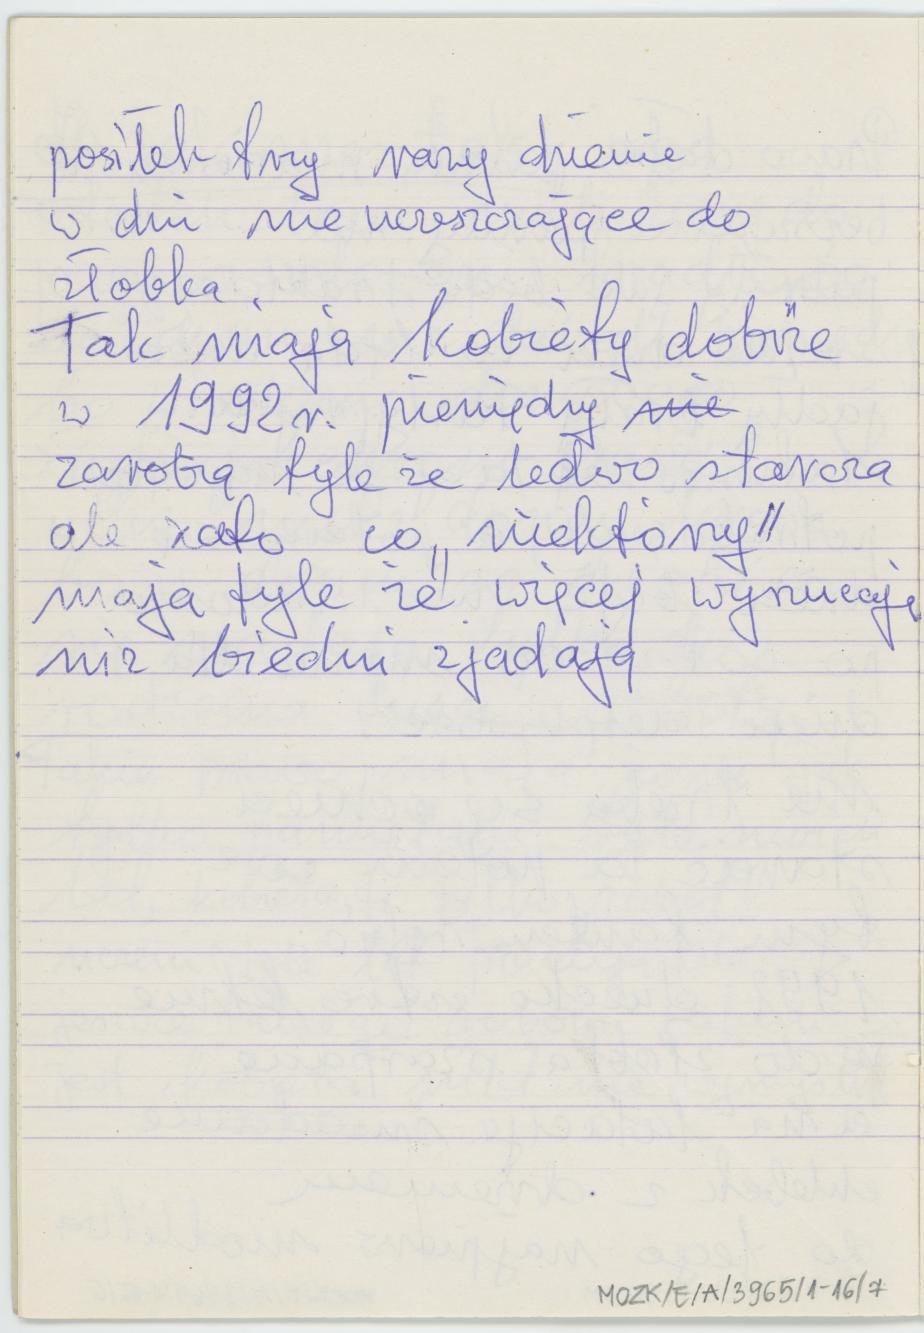 posiłek trzy razy dzienie
w dni nie uczeszczające do
złobka
Tak miają kobiety dobże
w 1992r. pieniędzy nie
zarobią tyle że ledwo starcza
ale zato co „niektórzy"
maja tyle że więcej wyrzucaję
niz biedni zjadają
MOZK/E/A/3965/1-16/7